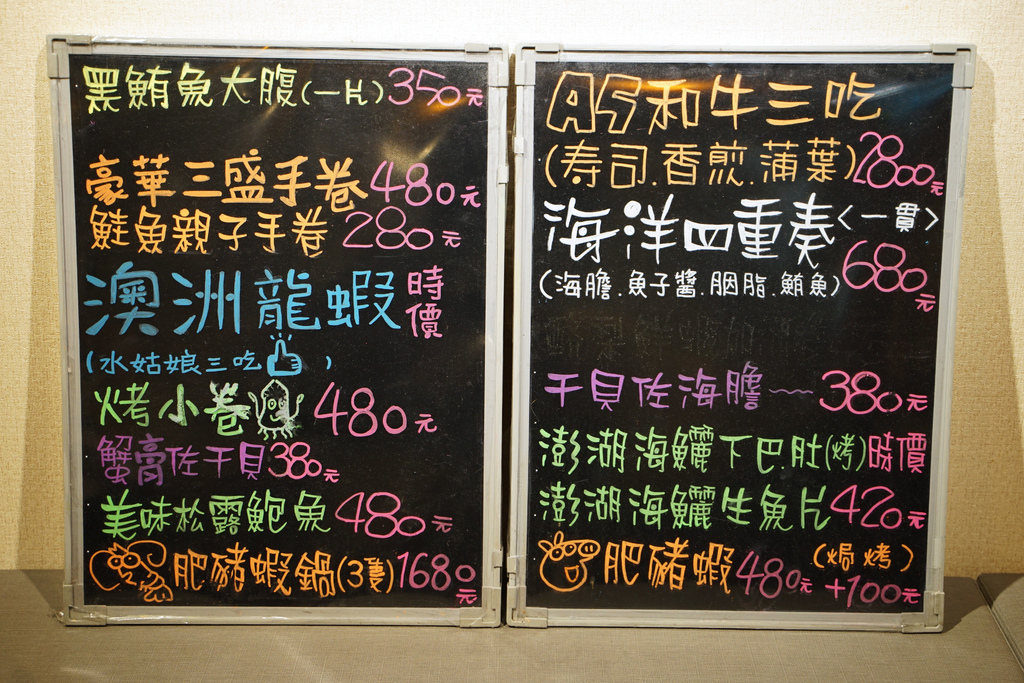 黑鮪魚大腹(一片)350元
豪華三盛手卷480元
鮭魚親子手卷280元
澳洲龍蝦時價
(水姑娘三吃)
烤小卷480元
蟹膏佐干貝380元
美味松露鮑魚480元
肥豬蝦鍋(3隻)1680元
A5和牛三吃
(寿司.香煎.蒲葉)2800元
海洋四重奏<一貫>
(海膽.魚子醬.胭脂.鮪魚)680元
干貝佐海膽~~380元
澎湖海鱺下巴.肚(烤)時價
澎湖海鱺生魚片420元
肥豬蝦480元(焗烤)+100元